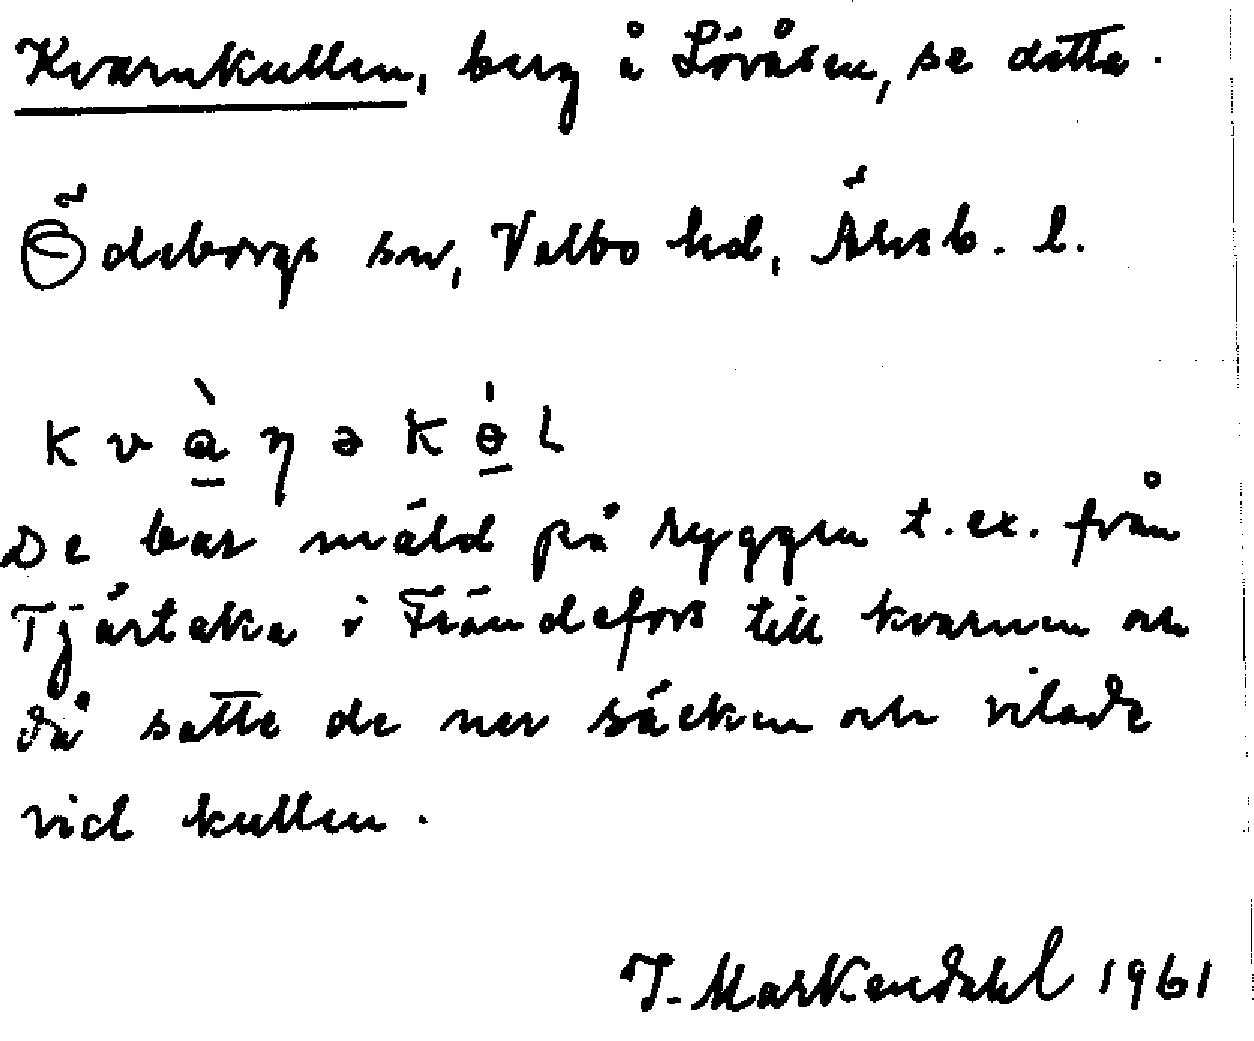 Kvarnkullen, berg å Lövåsen, se detta.
Ödeborgs sn, Valbo hd, Älvsb. l.
kvàṇəkɵ́l
De bar mäld på ryggen t.ex. från
Tjärtaka i Frändefors till kvarnen och
då satte de ner säcken och vilade
vid kullen.
J. Markendahl 1961